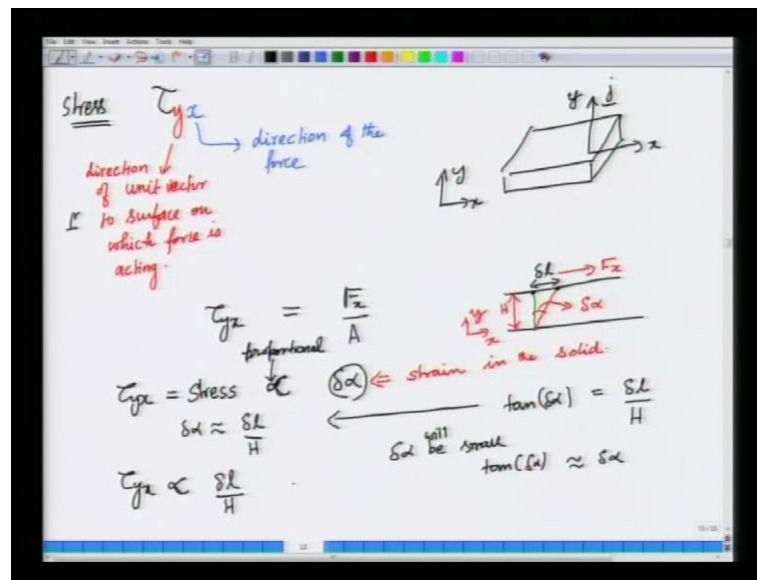 File Edit View Insert Actions Tools Help
Stress τyx
direction of the
force
direction
of unit vector
⊥r to surface on
which force is
acting.
y j
x
y
x
δl → Fx
H δα
y
x
τyx = Fx / A
proportional
τyx = stress ∝ δα ⇐ strain in the solid.
δα ≈ δl / H
tan(δα) = δl / H
δα will be small
tan(δα) ≈ δα
τyx ∝ δl / H